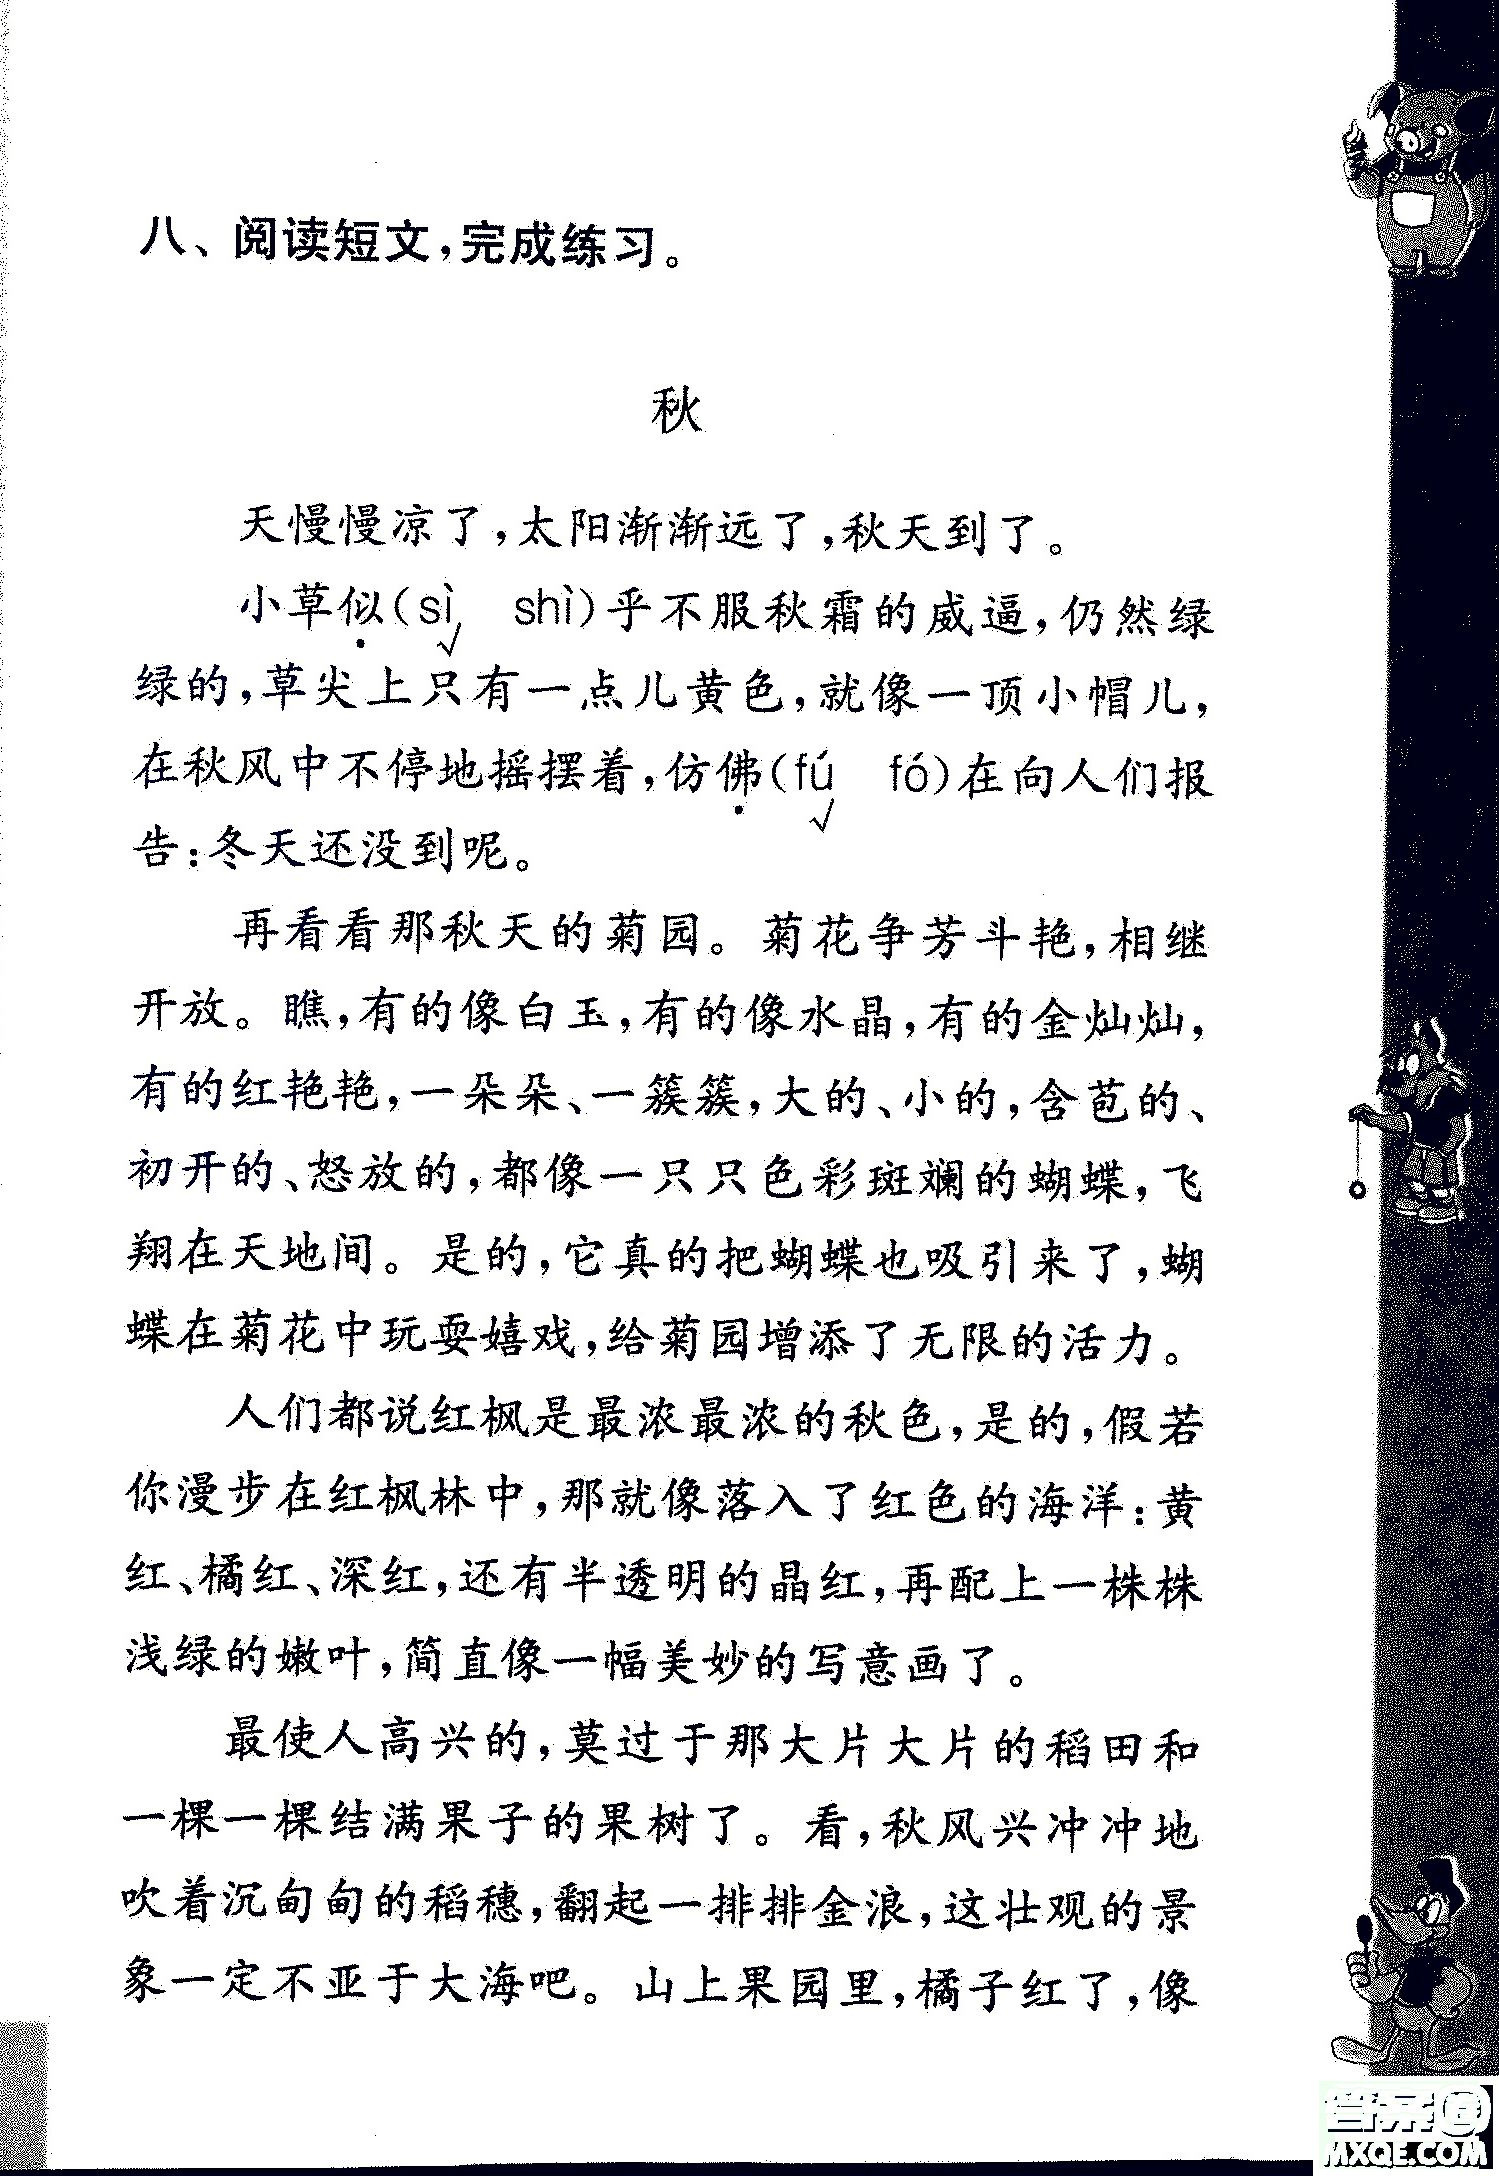 八、阅读短文,完成练习。
秋
天慢慢凉了,太阳渐渐远了,秋天到了。
小草似(sì shì)乎不服秋霜的威逼,仍然绿
√
绿的,草尖上只有一点儿黄色,就像一顶小帽儿,
在秋风中不停地摇摆着,仿佛(fú fó)在向人们报
√
告:冬天还没到呢。
再看看那秋天的菊园。菊花争芳斗艳,相继
开放。瞧,有的像白玉,有的像水晶,有的金灿灿,
有的红艳艳,一朵朵、一簇簇,大的、小的,含苞的、
初开的、怒放的,都像一只只色彩斑斓的蝴蝶,飞
翔在天地间。是的,它真的把蝴蝶也吸引来了,蝴
蝶在菊花中玩耍嬉戏,给菊园增添了无限的活力。
人们都说红枫是最浓最浓的秋色,是的,假若
你漫步在红枫林中,那就像落入了红色的海洋:黄
红、橘红、深红,还有半透明的晶红,再配上一株株
浅绿的嫩叶,简直像一幅美妙的写意画了。
最使人高兴的,莫过于那大片大片的稻田和
一棵一棵结满果子的果树了。看,秋风兴冲冲地
吹着沉甸甸的稻穗,翻起一排排金浪,这壮观的景
象一定不亚于大海吧。山上果园里,橘子红了,像
答案
MXQE.COM